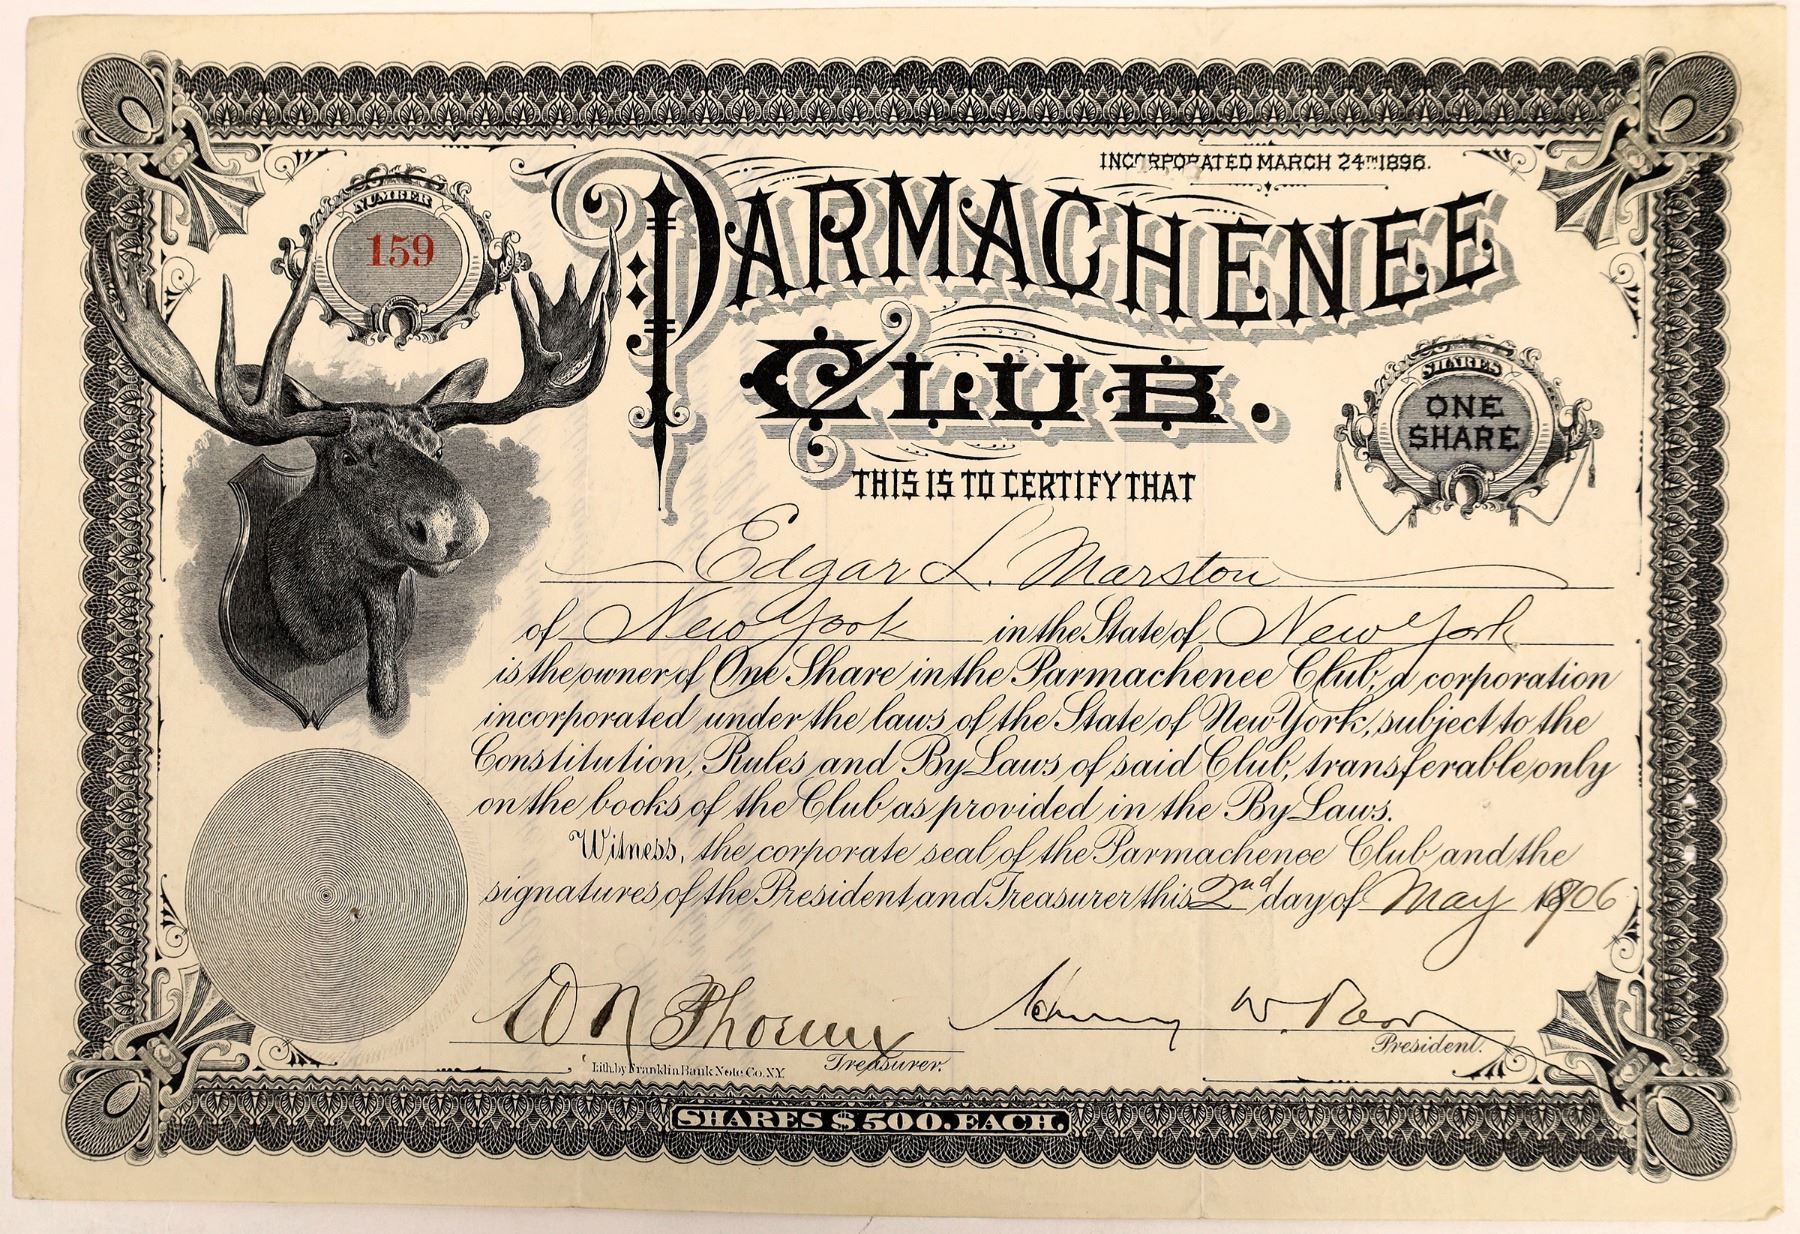 INCORPORATED MARCH 24TH 1896.
NUMBER
159
PARMACHENEE
CLUB.
SHARES
ONE
SHARE
THIS IS TO CERTIFY THAT
Edgar L. Marston
of New York in the State of New York
is the owner of One Share in the Parmachenee Club, a corporation
incorporated under the laws of the State of New York, subject to the
Constitution, Rules and By Laws of said Club, transferable only
on the books of the Club as provided in the By Laws.
Witness, the corporate seal of the Parmachenee Club and the
signatures of the President and Treasurer this 2nd day of May 1906
Treasurer.
President.
Lith. by Franklin Bank Note Co. N.Y.
SHARES $500. EACH.